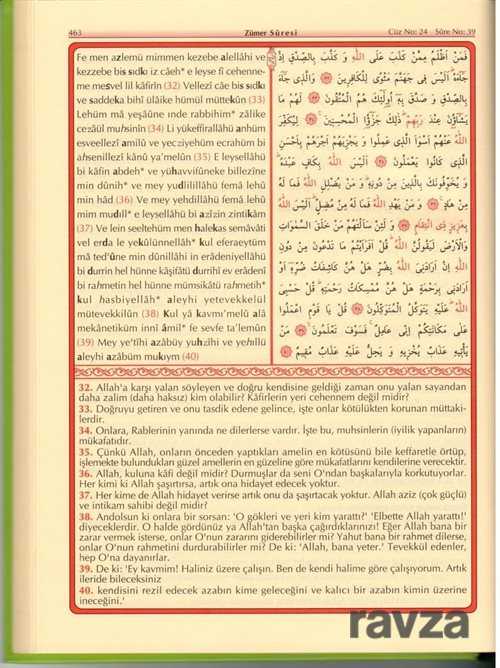 463 Zümer Sûresi Cüz No: 24 Sûre No: 39
Fe men azlemü mimmen kezebe alellâhi ve
kezzebe bis sıdkı iz câeh* e leyse fî cehenne-
me mesvel lil kâfirîn (32) Vellezî câe bis sıdkı
ve saddeka bihî ülâike hümül müttekûn (33)
Lehüm mâ yeşâûne ınde rabbihim* zâlike
cezâül muhsinîn (34) Li yükeffirallâhü anhüm
esveellezî amilû ve yecziyehüm ecrahüm bi
ahsenillezî kânû ya'melûn (35) E leysellâhü
bi kâfin abdeh* ve yühavvifûneke billezîne
min dûnih* ve mey yudlilillâhü femâ lehû
min hâd (36) Ve mey yehdillâhü femâ lehû
mim mudıll* e leysellâhü bi azîzin zintikâm
(37) Ve lein seeltehüm men halekas semâvâti
vel erda le yekûlünnellâh* kul eferaeytüm
mâ ted'ûne min dûnillâhi in erâdeniyellâhü
bi durrin hel hünne kâşifâtü durrihî ev erâdenî
bi rahmetin hel hünne mümsikâtü rahmetih*
kul hasbiyellâh* aleyhi yetevekkelül
mütevekkilûn (38) Kul yâ kavmı'melû alâ
mekânetiküm innî âmil* fe sevfe ta'lemûn
(39) Mey ye'tîhi azâbüy yuhzîhi ve yehıllü
aleyhi azâbüm mukıym (40)
فَمَنْ اَظْلَمُ مِمَّنْ كَذَبَ عَلَى اللّٰهِ وَ كَذَّبَ بِالصِّدْقِ اِذْ
جَٓاءَهُ اَلَيْسَ فٖى جَهَنَّمَ مَثْوًى لِلْكَافِرٖينَ ﴿٣٢﴾ وَالَّذٖى جَٓاءَ
بِالصِّدْقِ وَ صَدَّقَ بِهٖ اُولٰٓئِكَ هُمُ الْمُتَّقُونَ ﴿٣٣﴾ لَهُمْ مَا
يَشَٓاؤُنَ عِنْدَ رَبِّهِمْ ذٰلِكَ جَزٰٓؤُا الْمُحْسِنٖينَ ﴿٣٤﴾ لِيُكَفِّرَ
اللّٰهُ عَنْهُمْ اَسْوَاَ الَّذٖى عَمِلُوا وَ يَجْزِيَهُمْ اَجْرَهُمْ بِاَحْسَنِ
الَّذٖى كَانُوا يَعْمَلُونَ ﴿٣٥﴾ اَلَيْسَ اللّٰهُ بِكَافٍ عَبْدَهُ
وَ يُخَوِّفُونَكَ بِالَّذٖينَ مِنْ دُونِهٖ وَ مَنْ يُضْلِلِ اللّٰهُ فَمَا لَهُ
مِنْ هَادٍ ﴿٣٦﴾ وَ مَنْ يَهْدِ اللّٰهُ فَمَا لَهُ مِنْ مُضِلٍّ اَلَيْسَ اللّٰهُ
بِعَزٖيزٍ ذِى انْتِقَامٍ ﴿٣٧﴾ وَ لَئِنْ سَاَلْتَهُمْ مَنْ خَلَقَ السَّمٰوَاتِ
وَالْاَرْضَ لَيَقُولُنَّ اللّٰهُ قُلْ اَفَرَاَيْتُمْ مَا تَدْعُونَ مِنْ دُونِ
اللّٰهِ اِنْ اَرَادَنِىَ اللّٰهُ بِضُرٍّ هَلْ هُنَّ كَاشِفَاتُ ضُرِّهٖ اَوْ
اَرَادَنٖى بِرَحْمَةٍ هَلْ هُنَّ مُمْسِكَاتُ رَحْمَتِهٖ قُلْ حَسْبِىَ
اللّٰهُ عَلَيْهِ يَتَوَكَّلُ الْمُتَوَكِّلُونَ ﴿٣٨﴾ قُلْ يَا قَوْمِ اعْمَلُوا
عَلٰى مَكَانَتِكُمْ اِنّٖى عَامِلٌ فَسَوْفَ تَعْلَمُونَ ﴿٣٩﴾ مَنْ
يَاْتٖيهِ عَذَابٌ يُخْزٖيهِ وَ يَحِلُّ عَلَيْهِ عَذَابٌ مُقٖيمٌ ﴿٤٠﴾
32. Allah'a karşı yalan söyleyen ve doğru kendisine geldiği zaman onu yalan sayandan
daha zalim (daha haksız) kim olabilir? Kâfirlerin yeri cehennem değil midir?
33. Doğruyu getiren ve onu tasdik edene gelince, işte onlar kötülükten korunan müttaki-
lerdir.
34. Onlara, Rablerinin yanında ne dilerlerse vardır. İşte bu, muhsinlerin (iyilik yapanların)
mükafatıdır.
35. Çünkü Allah, onların önceden yaptıkları amelin en kötüsünü bile keffaretle örtüp,
işlemekte bulundukları güzel amellerin en güzeline göre mükafatlarını kendilerine verecektir.
36. Allah, kuluna kâfi değil midir? Durmuşlar da seni O'ndan başkalarıyla korkutuyorlar.
Her kimi ki Allah şaşırtırsa, artık ona hidayet edecek yoktur.
37. Her kime de Allah hidayet verirse artık onu da şaşırtacak yoktur. Allah aziz (çok güçlü)
ve intikam sahibi değil midir?
38. Andolsun ki onlara bir sorsan: 'O gökleri ve yeri kim yarattı?' 'Elbette Allah yarattı!'
diyeceklerdir. O halde gördünüz ya Allah'tan başka çağırdıklarınızı! Eğer Allah bana bir
zarar vermek isterse, onlar O'nun zararını giderebilirler mi? Yahut bana bir rahmet dilerse,
onlar O'nun rahmetini durdurabilirler mi? De ki: 'Allah, bana yeter.' Tevekkül edenler,
hep O'na dayanırlar.
39. De ki: 'Ey kavmim! Haliniz üzere çalışın. Ben de kendi halime göre çalışıyorum. Artık
ileride bileceksiniz
40. kendisini rezil edecek azabın kime geleceğini ve kalıcı bir azabın kimin üzerine
ineceğini.'
ravza